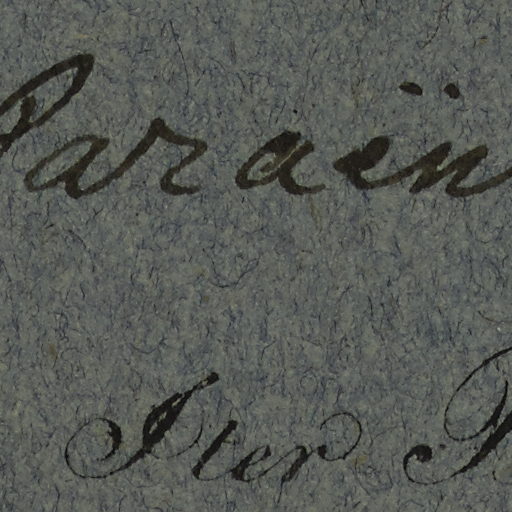 Paraën
Iter